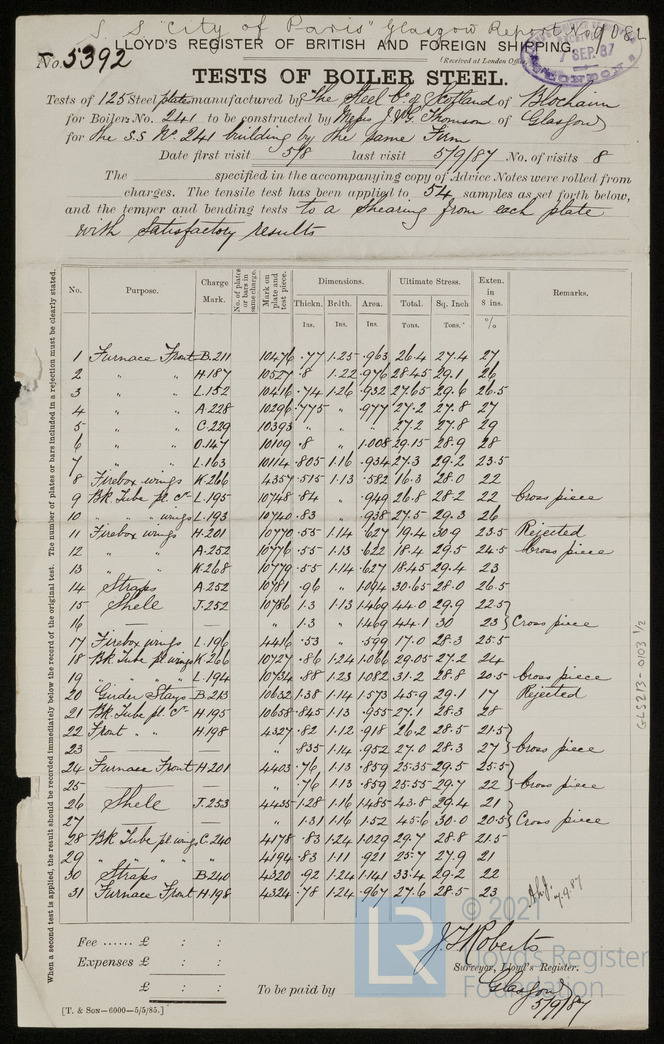 S. S "City of Paris" Glasgow Report No 9082
LLOYD'S REGISTER OF BRITISH AND FOREIGN SHIPPING,
No. 5392
(Received at London Office
7 SEP. 87
TESTS OF BOILER STEEL.
Tests of 125 Steel plates manufactured by The Steel Co. of Scotland of Blochairn
for Boilers No. 241 to be constructed by Messrs J. & G. Thomson of Glasgow
for the S.S No. 241 building by the same Firm
Date first visit 5/8 last visit 5/9/87 No. of visits 8
The specified in the accompanying copy of Advice Notes were rolled from
charges. The tensile test has been applied to 54 samples as set forth below,
and the temper and bending tests to a shearing from each plate
with satisfactory results
No. Purpose. Charge Mark. No. of plates or bars in same charge. Mark on plate and test piece. Dimensions. Ultimate Stress. Exten. in 8 ins. Remarks.
Thickn. Brdth. Area. Total. Sq. Inch
Ins. Ins. Ins. Tons. Tons. %
1 Furnace Front B.211 10476 .77 1.25 .963 26.4 27.4 27
2 " " H.187 10527 .8 1.22 .976 28.45 29.1 26
3 " " L.152 10416 .74 1.26 .932 27.65 29.6 26.5
4 " " A.228 10296 .775 " .977 27.2 27.8 27
5 " " C.229 10393 " " " 27.2 27.8 29
6 " " O.147 10109 .8 " 1.008 29.15 28.9 28
7 " " L.163 10114 .805 1.16 .934 27.3 29.2 23.5
8 Firebox wings K.266 4357 .515 1.13 .582 16.3 28.0 22
9 Bk Tube pl. Cr L.195 10748 .84 " .949 26.8 28.2 22 Cross piece
10 " " " wings L.193 10740 .83 " .938 27.5 29.3 26
11 Firebox wings H.201 10770 .55 1.14 .627 19.4 30.9 23.5 Rejected
12 " A.252 10776 .55 1.13 .622 18.4 29.5 24.5 Cross piece
13 " K.268 10779 .55 1.14 .627 18.45 29.4 23
14 Straps A.252 10781 .96 " 1.094 30.65 28.0 26.5
15 Shell J.252 10786 1.3 1.13 1.469 44.0 29.9 22.5
16 — — " 1.3 " 1.469 44.1 30 23 } Cross piece
17 Firebox wings L.196 4416 .53 " .599 17.0 28.3 25.5
18 Bk Tube pl. wings K.266 10727 .86 1.24 1.066 29.05 27.2 24
19 " " " L.194 10734 .88 1.23 1.082 31.2 28.8 20.5 Cross piece
20 Girder Stays B.213 10632 1.38 1.14 1.573 45.9 29.1 17 Rejected
21 Bk Tube pl. Cr H.195 10658 .845 1.13 .955 27.1 28.3 28
22 Front " " H.198 4327 .82 1.12 .918 26.2 28.5 21.5
23 — — " .835 1.14 .952 27.0 28.3 27 } Cross piece
24 Furnace Front H.201 4403 .76 1.13 .859 25.35 29.5 25.5
25 — — " .76 1.13 .859 25.55 29.7 22 } Cross piece
26 Shell J.253 4435 1.28 1.16 1.485 43.8 29.4 21
27 — — " 1.31 1.16 1.52 45.6 30.0 20.5 } Cross piece
28 Bk Tube pl. wings C.240 4178 .83 1.24 1.029 29.7 28.8 21.5
29 " " " " 4194 .83 1.11 .921 25.7 27.9 21
30 Straps B.240 4320 .92 1.24 1.141 33.4 29.2 22
31 Furnace Front H.198 4324 .78 1.24 .967 27.6 28.5 23
7.9.87
When a second test is applied, the result should be recorded immediately below the record of the original test. The number of plates or bars included in a rejection must be clearly stated.
GLS273-0103 1/2
Fee ...... £ : :
Expenses £ : :
£ : :
To be paid by
J. F Roberts
Surveyor, Lloyd's Register.
Glasgow
5/9/87
[T. & SON—6000—5/5/85.]
LR
© 2021
Lloyd's Register
Foundation